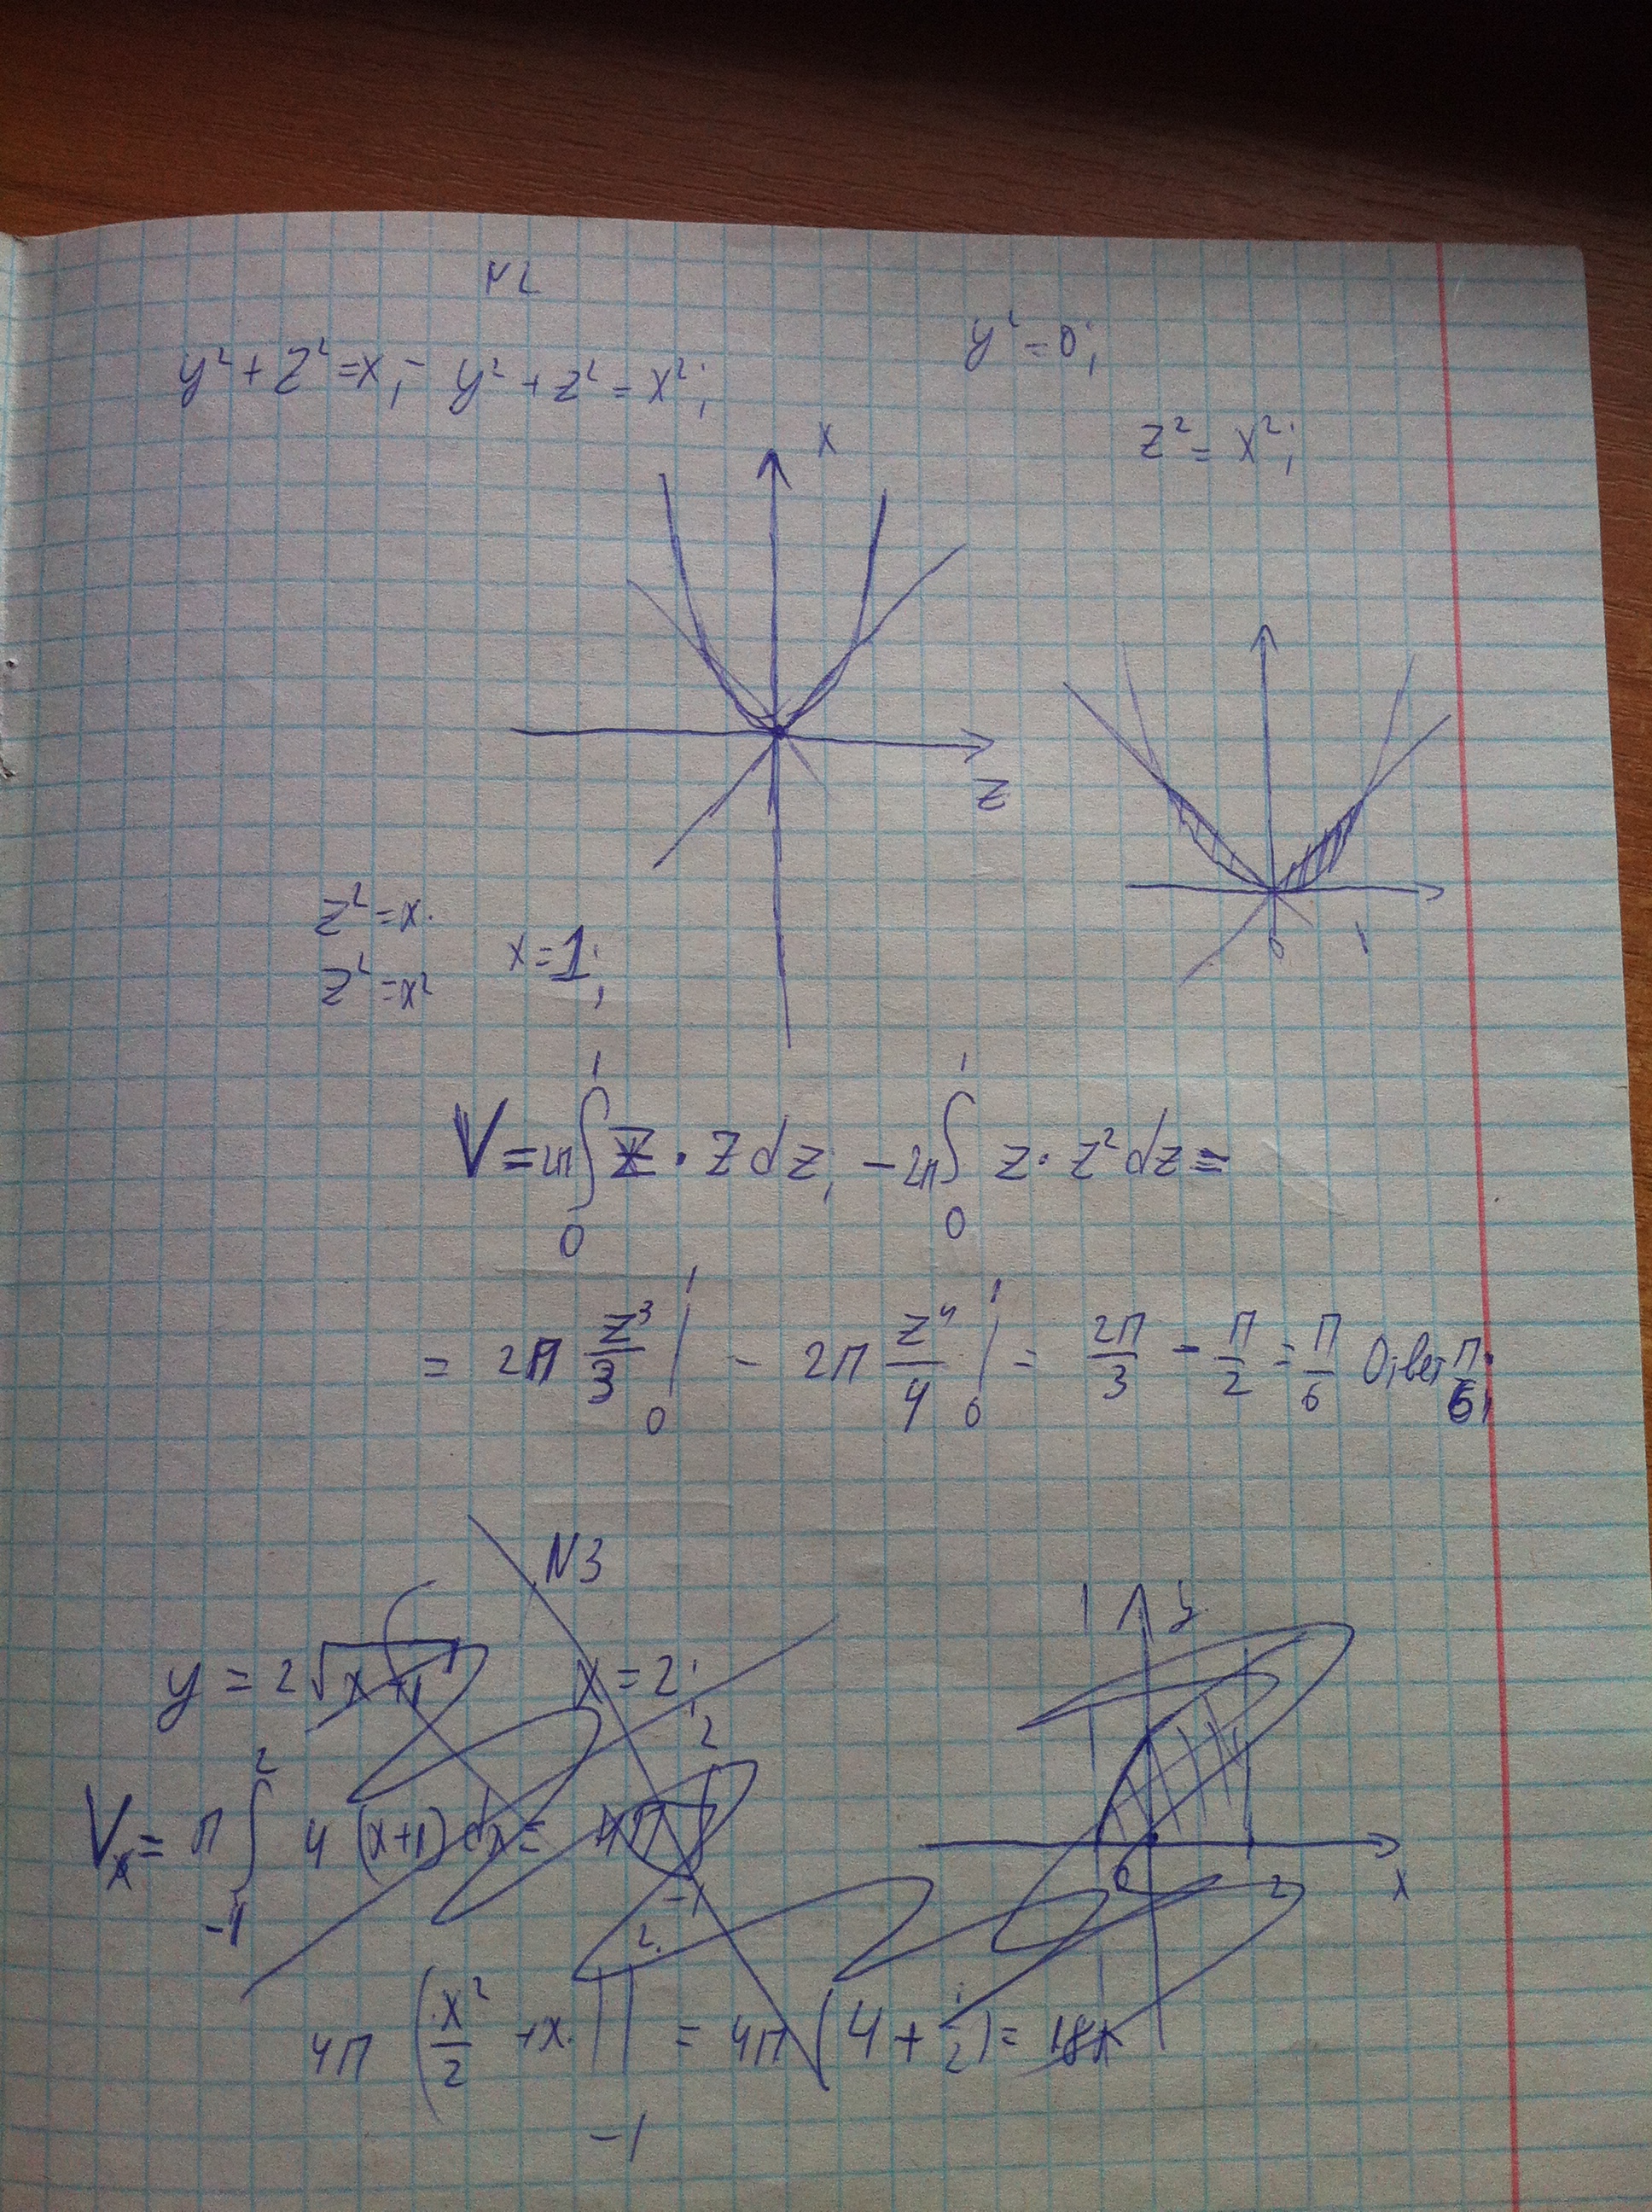 N2
y² + z² = x; y² + z² = x²; y² = 0;
z² = x²;
x
z
z² = x.
z² = x² x = 1;
0 1
V = 2π ∫₀¹ z · z dz, - 2π ∫₀¹ z · z² dz =
= 2π z³/3 |₀¹ - 2π z⁴/4 |₀¹ = 2π/3 - π/2 = π/6 Ответ π/6;
N3
y
y = 2√x+1 x = 2;
Vₓ = π ∫₋₁² 4 (x+1) dx = 4π
0 2 x
4π (x²/2 + x) |₋₁² = 4π (4 + 1/2) = 18π